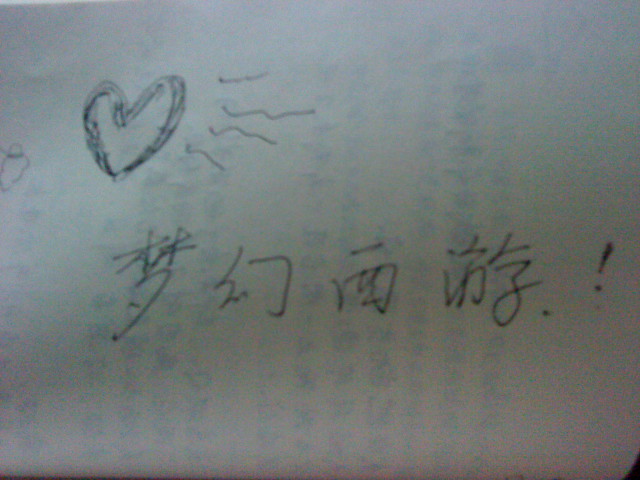 梦幻西游.!